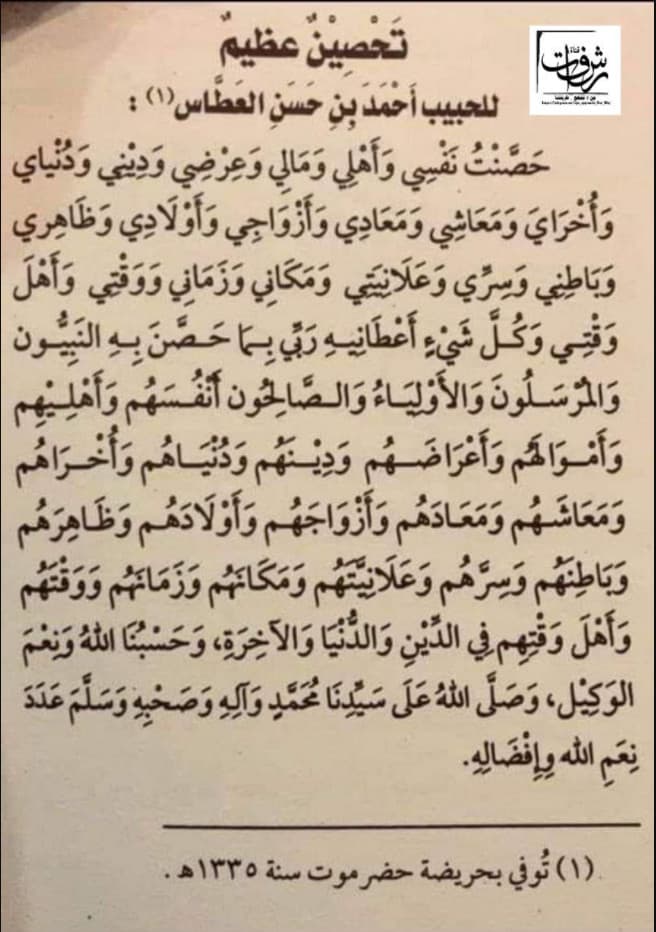 تَحْصِيْنٌ عظِيمٌ
للحبيب أحْمَدَ بِنِ حَسَنِ العَطَّاس(١) :
حَصَّنْتُ نَفْسِي وَأَهْلِي وَمَالِي وَعِرْضِي وَدِيْنِي وَدُنْيَاي
وَأُخْرَايَ وَمَعَاشِي وَمَعَادِي وَأَزْوَاجِي وَأَوْلَادِي وَظَاهِرِي
وَبَاطِنِي وَسِرِّي وَعَلَانِيَتِي وَمَكَانِي وَزَمَانِي وَوَقْتِي وَأَهْلَ
وَقْتِي وَكُلَّ شَيْءٍ أَعْطَانِيهِ رَبِّي بِمَا حَصَّنَ بِهِ النَبِيُّون
وَالمُرْسَلُونَ وَالأَوْلِيَاءُ وَالصَّالِحُون أَنْفُسَهُم وَأَهْلِيْهِم
وَأَمْوَالَهُم وَأَعْرَاضَهُم وَدِيْنَهُم وَدُنْيَاهُم وَأُخْرَاهُم
وَمَعَاشَهُم وَمَعَادَهُم وَأَزْوَاجَهُم وَأَوْلَادَهُم وَظَاهِرَهُم
وَبَاطِنَهُم وَسِرَّهُم وَعَلَانِيَّتَهُم وَمَكَانَهُم وَزَمَانَهُم وَوَقْتَهُم
وَأَهْلَ وَقْتِهِم فِي الدِّيْنِ وَالدُّنْيَا وَالآخِرَةِ، وَحَسْبُنَا اللهُ وَنِعْمَ
الوَكِيْل، وَصَلَّى اللهُ عَلَى سَيِّدِنَا مُحَمَّدٍ وَآلِهِ وَصَحْبِهِ وَسَلَّمَ عَدَدَ
نِعَمِ الله وِإِفْضَالِهِ.
(١) تُوفي بحريضة حضرموت سنة ١٣٣٥هـ.